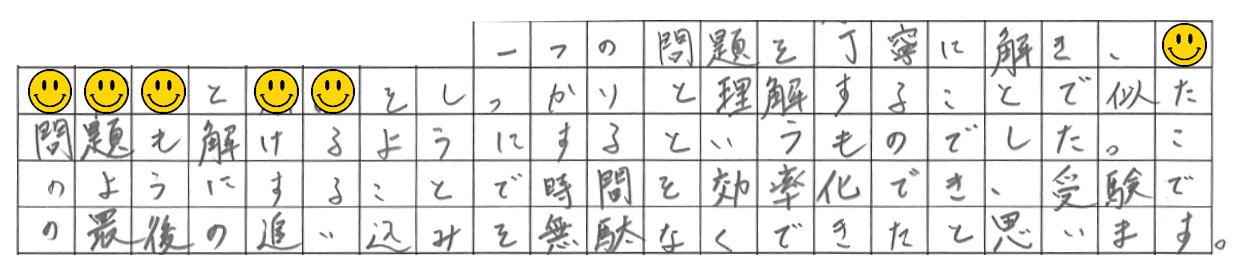 一つの問題を丁寧に解き、
と をしっかりと理解することで似た
問題も解けるようにするというものでした。こ
のようにすることで時間を効率化でき、受験で
の最後の追い込みを無駄なくできたと思います。